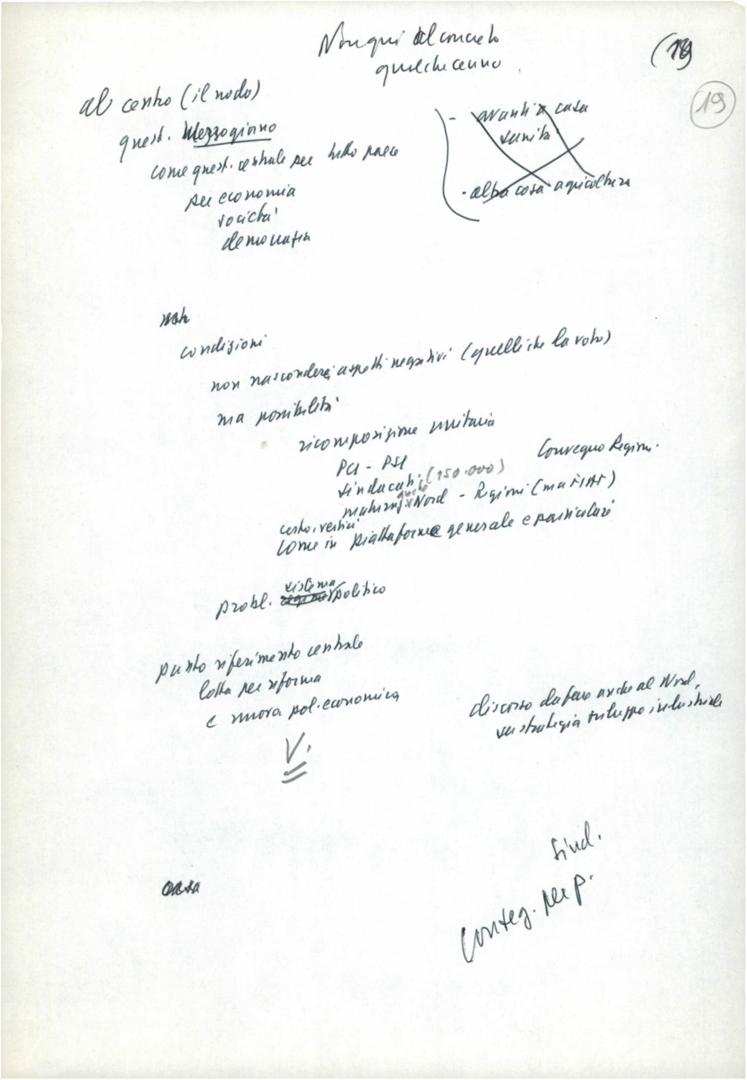 Non qui del concreto
qualche cenno.
(18)
19
al centro (il nodo)
quest. Mezzogiorno
come quest. centrale per tutto paese
per economia
società
democrazia
- avanti casa
sanità
- altra cosa agricoltura
condizioni
non nascondere aspetti negativi (quelli che la voto)
ma possibilità
ricomposizione unitaria
PCI - PSI
Convegno Regioni.
sindacati (150.000)
anche
Nord - Regioni (ma FIAT)
certo, vertici
come in piattaforme generale e particolari
sistema
probl. politico
punto riferimento centrale
lotta per riforma
e nuova pol. economica
V.
discorso da fare anche al Nord,
su strategia sviluppo industriale
casa
Sind.
Conteg. per p.